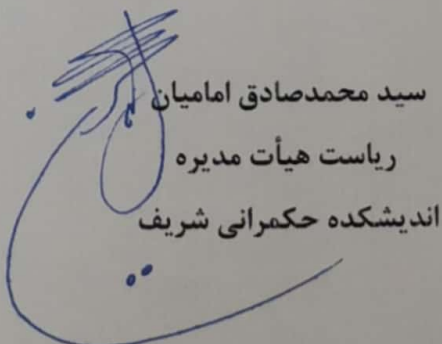 سید محمدصادق امامیان
ریاست هیأت مدیره
اندیشکده حکمرانی شریف